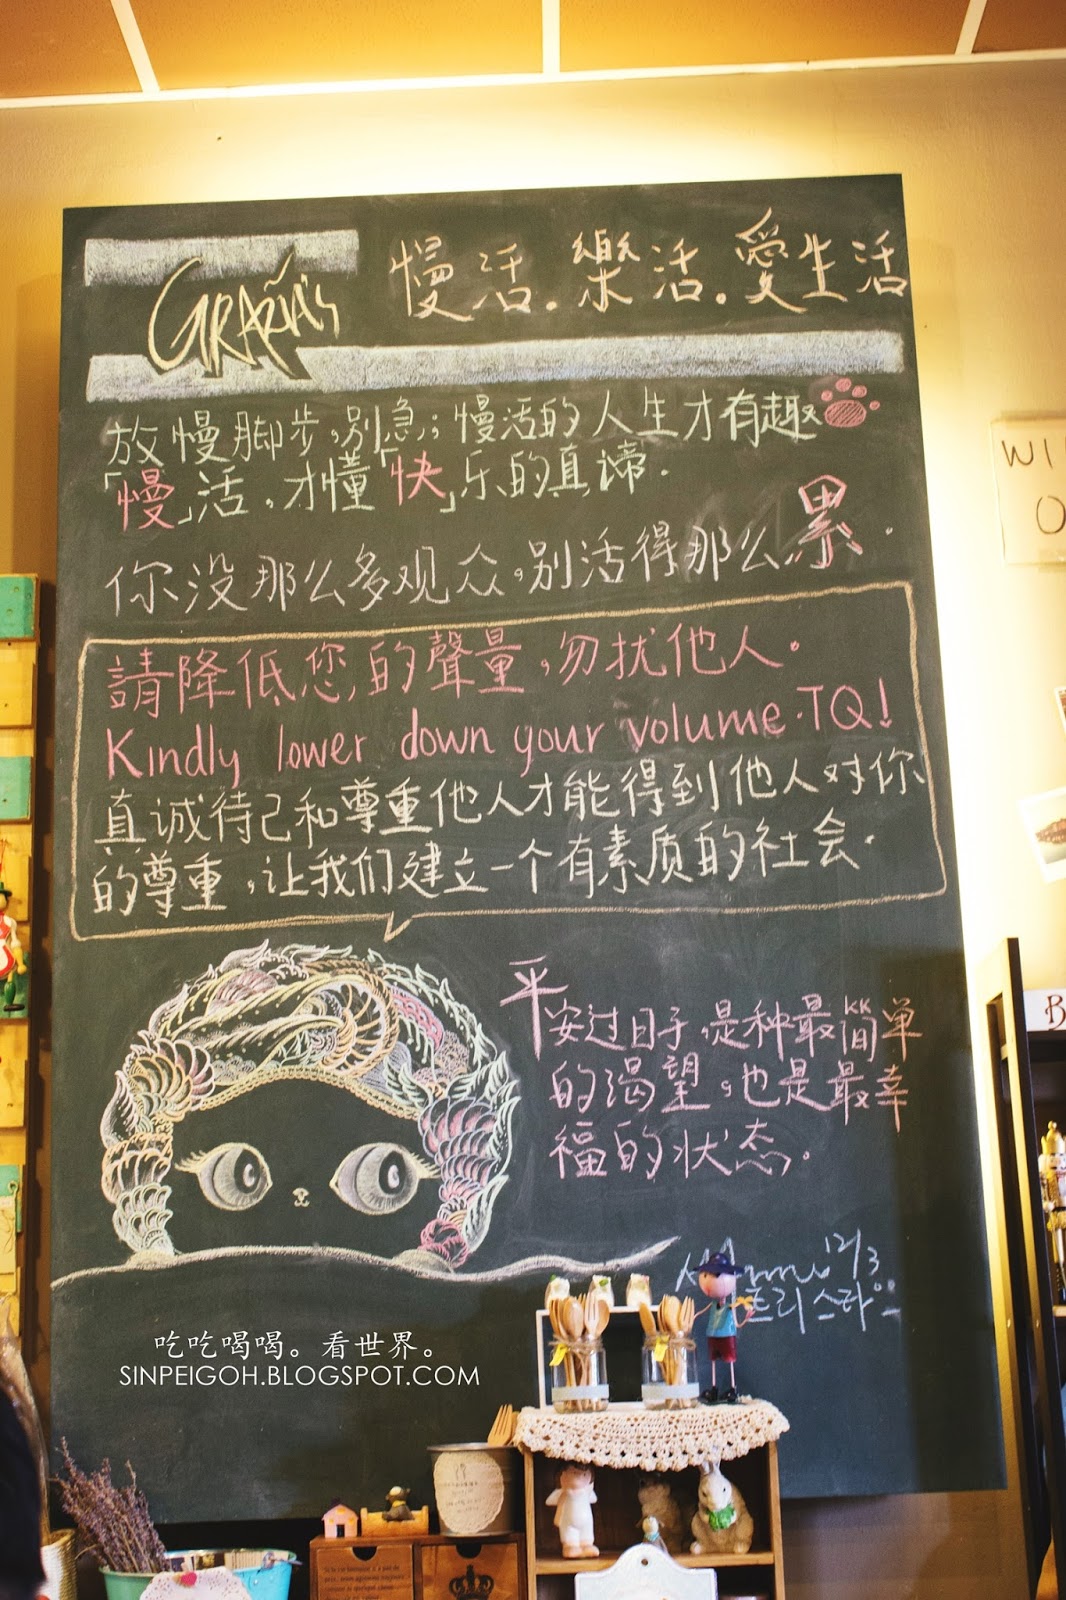 GRAZIA's
慢活。樂活。愛生活
放慢脚步,别急;慢活的人生才有趣
「慢」活,才懂「快」乐的真谛.
你没那么多观众,别活得那么累.
請降低您的聲量,勿扰他人.
Kindly lower down your volume. TQ!
真诚待己和尊重他人才能得到他人对你
的尊重,让我们建立一个有素质的社会.
平安过日子,是种最简单
的渴望,也是最幸
福的状态.
12/3
리스타
吃吃喝喝。看世界。
SINPEIGOH.BLOGSPOT.COM
WI
O
B